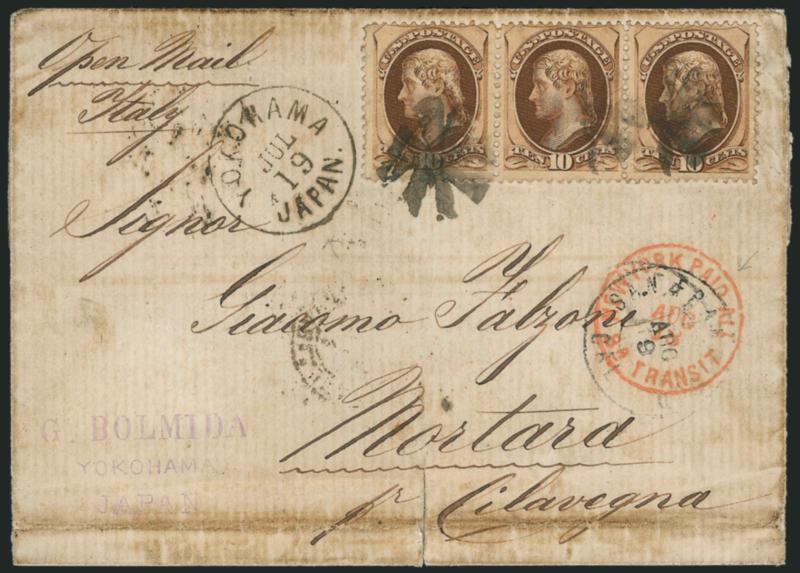 Open Mail
Italy
U.S. POSTAGE
U.S. POSTAGE
U.S. POSTAGE
TEN 10 CENTS
TEN 10 CENTS
YOKOHAMA
JUL
19
JAPAN.
Signor
Giacomo Falzone
NEW YORK PAID ALL
BR. TRANSIT
SAN FRAN
AUG
CAL
G. BOLMIDA
YOKOHAMA,
JAPAN
Mortara
pr Cilavegna